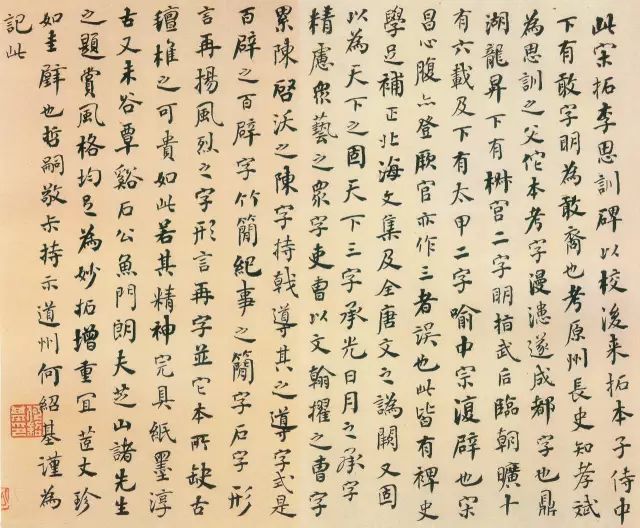 此宋拓李思訓碑以校後来拓本子侍中
下有敢字明為敢裔也考原州長史知孝斌
為思訓之父佗本考字漫漶遂成都字也鼎
湖龍昇下有椒宮二字明指武后臨朝曠十
有六載及下有太甲二字喻中宗復辟也宋
昌心腹六登厥官亦作三者誤也此皆有裨史
學足補正北海文集及全唐文之譌闕又固
以為天下之固天下三字承光日月之承字
精慮眾藝之眾字吏曹以文翰擢之曹字
累陳啓沃之陳字持戟導其之導字式是
百辟之百辟字竹簡紀事之簡字石字形
言再揚風烈之字形言再字並它本所缺古
氈椎之可貴如此若其精神完具紙墨淳
古又未谷覃谿石公魚門朗夫芝山諸先生
之題賞風格均足為妙拓增重宜丈珍
如圭璧也哲嗣敬尗持示道州何紹基謹為
記此